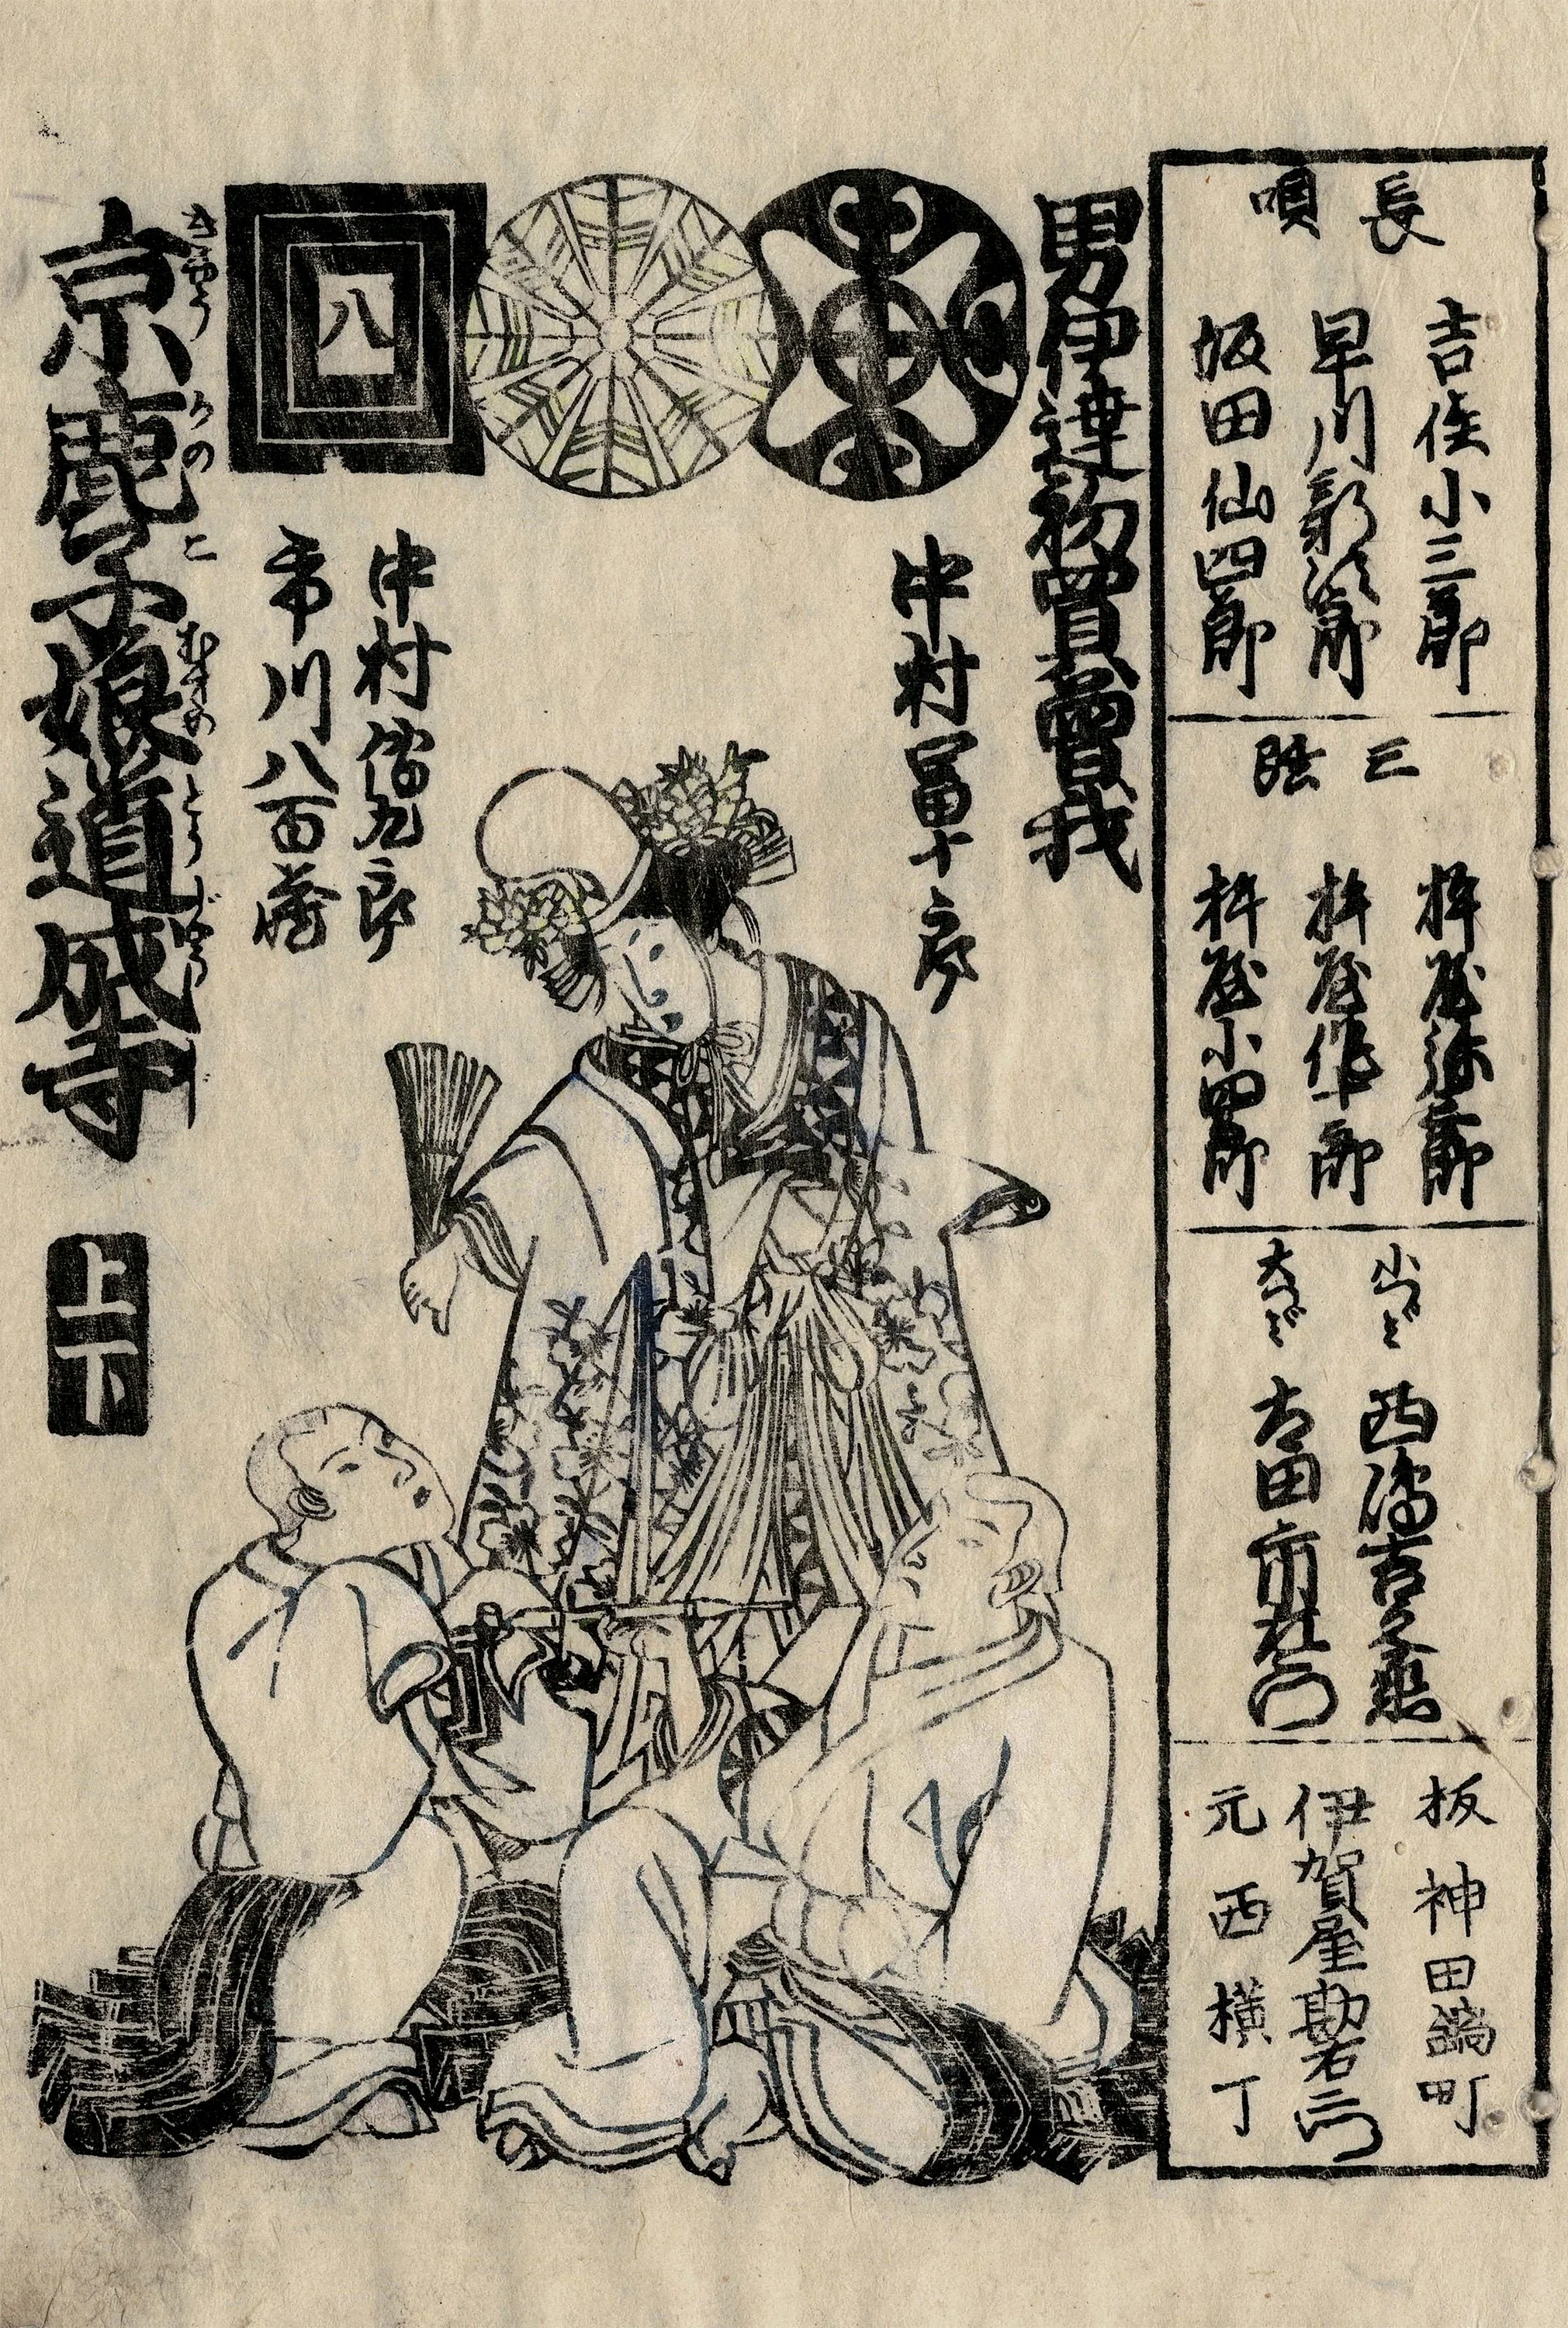 長唄
吉住小三郎
早川新次郎
坂田仙四郎
三弦
杵屋弥三郎
杵屋作十郎
杵屋小四郎
小つゞみ
西沸吉兵衛
大つゞみ
太田市左衛門
板 神田鍋町
伊賀屋勘右衛門
元 西横丁
男伊達初買曽我
中村富十郎
八
中村傳九郎
市川八百蔵
京鹿子娘道成寺
きやうかのこむすめとうじやうじ
上下